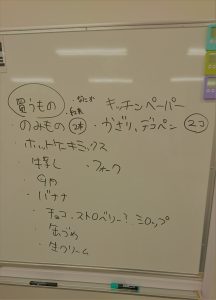 買うもの
キッチンペーパー
のみもの 2本 ・かざり、デコペン 2コ
・ホットケーキミックス
・牛乳
・フォーク
・バナナ
・チョコ、ストロベリー? シロップ
・缶づめ
・生クリーム